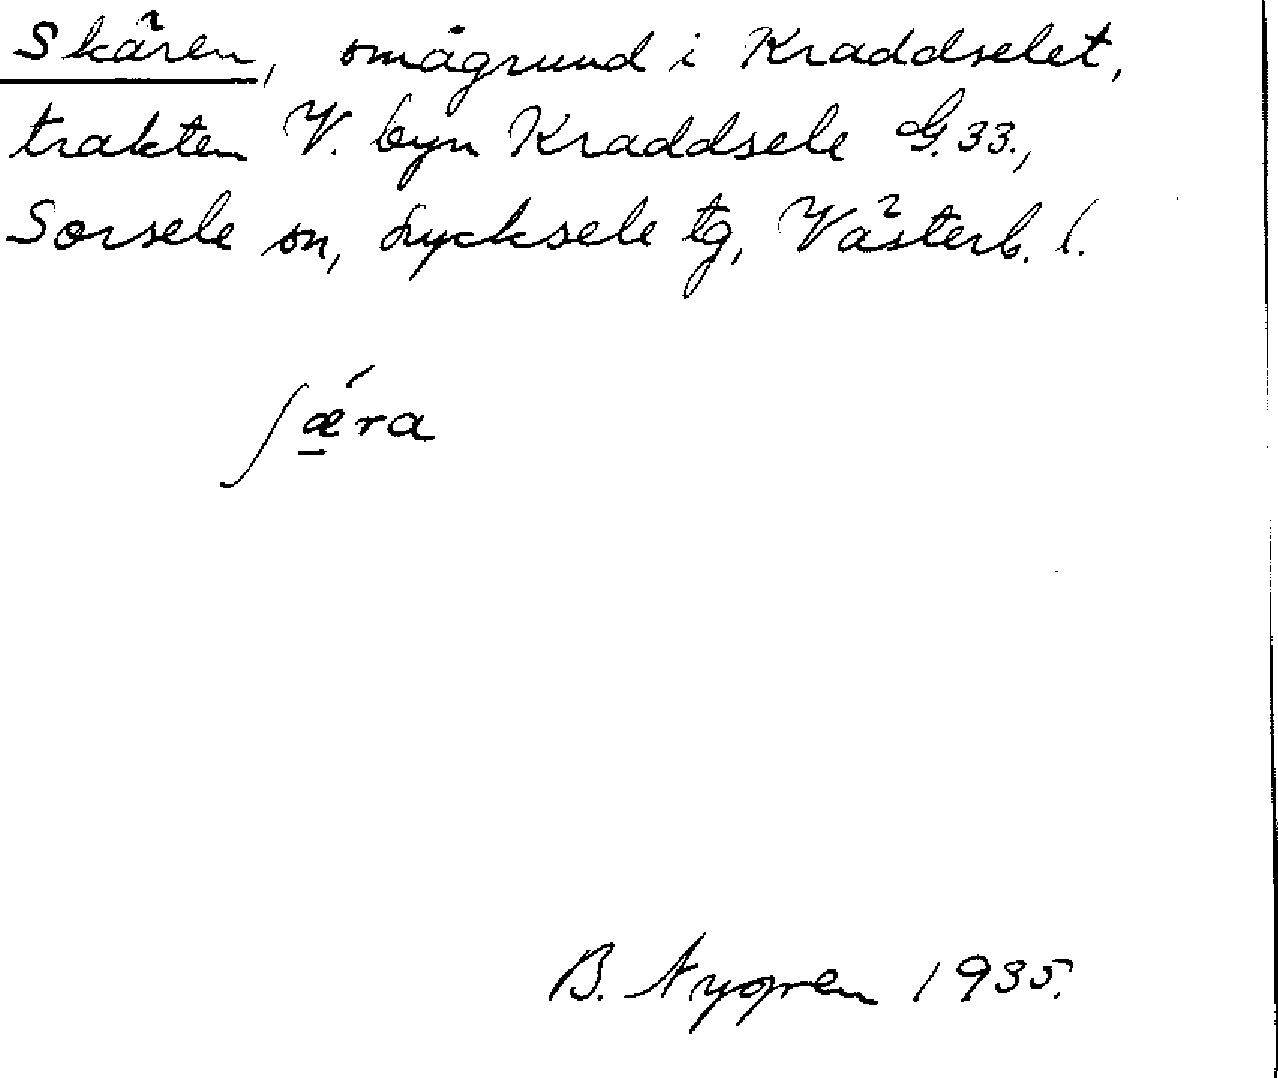 Skären, smågrund i Kraddselet,
trakten V. byn Kraddsele G.33.,
Sorsele sn, Lycksele tg, Västerb. l.
ʃǽ̱ra
B. Nygren 1935.